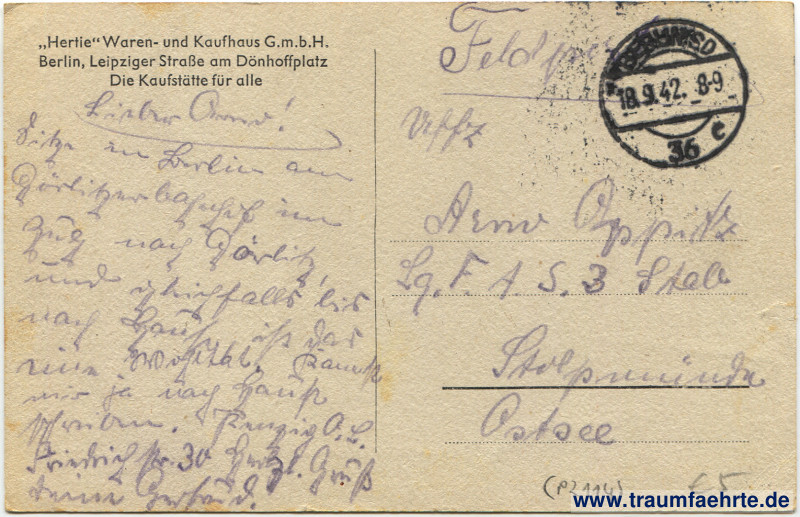 „Hertie“ Waren- und Kaufhaus G.m.b.H.
Berlin, Leipziger Straße am Dönhoffplatz
Die Kaufstätte für alle
Lieber Arno!
Sitze in Berlin am
Görlitzerbahnhof im
Zug nach Görlitz
und gleichfalls bis
nach Hause ist das
eine Wohltat. Kannst
mir ja nach Hause
schreiben. Penzig O.L.
Friedrichstr. 30 Herzl. Gruß
Feldpost
BERLIN SO
18.9.42. 8-9
36 c
Uffz
Arno Oppitz
Lg. F. A. S. 3 Stab
Stolpmünde
Ostsee
(PZ114)
€5
www.traumfaehrte.de